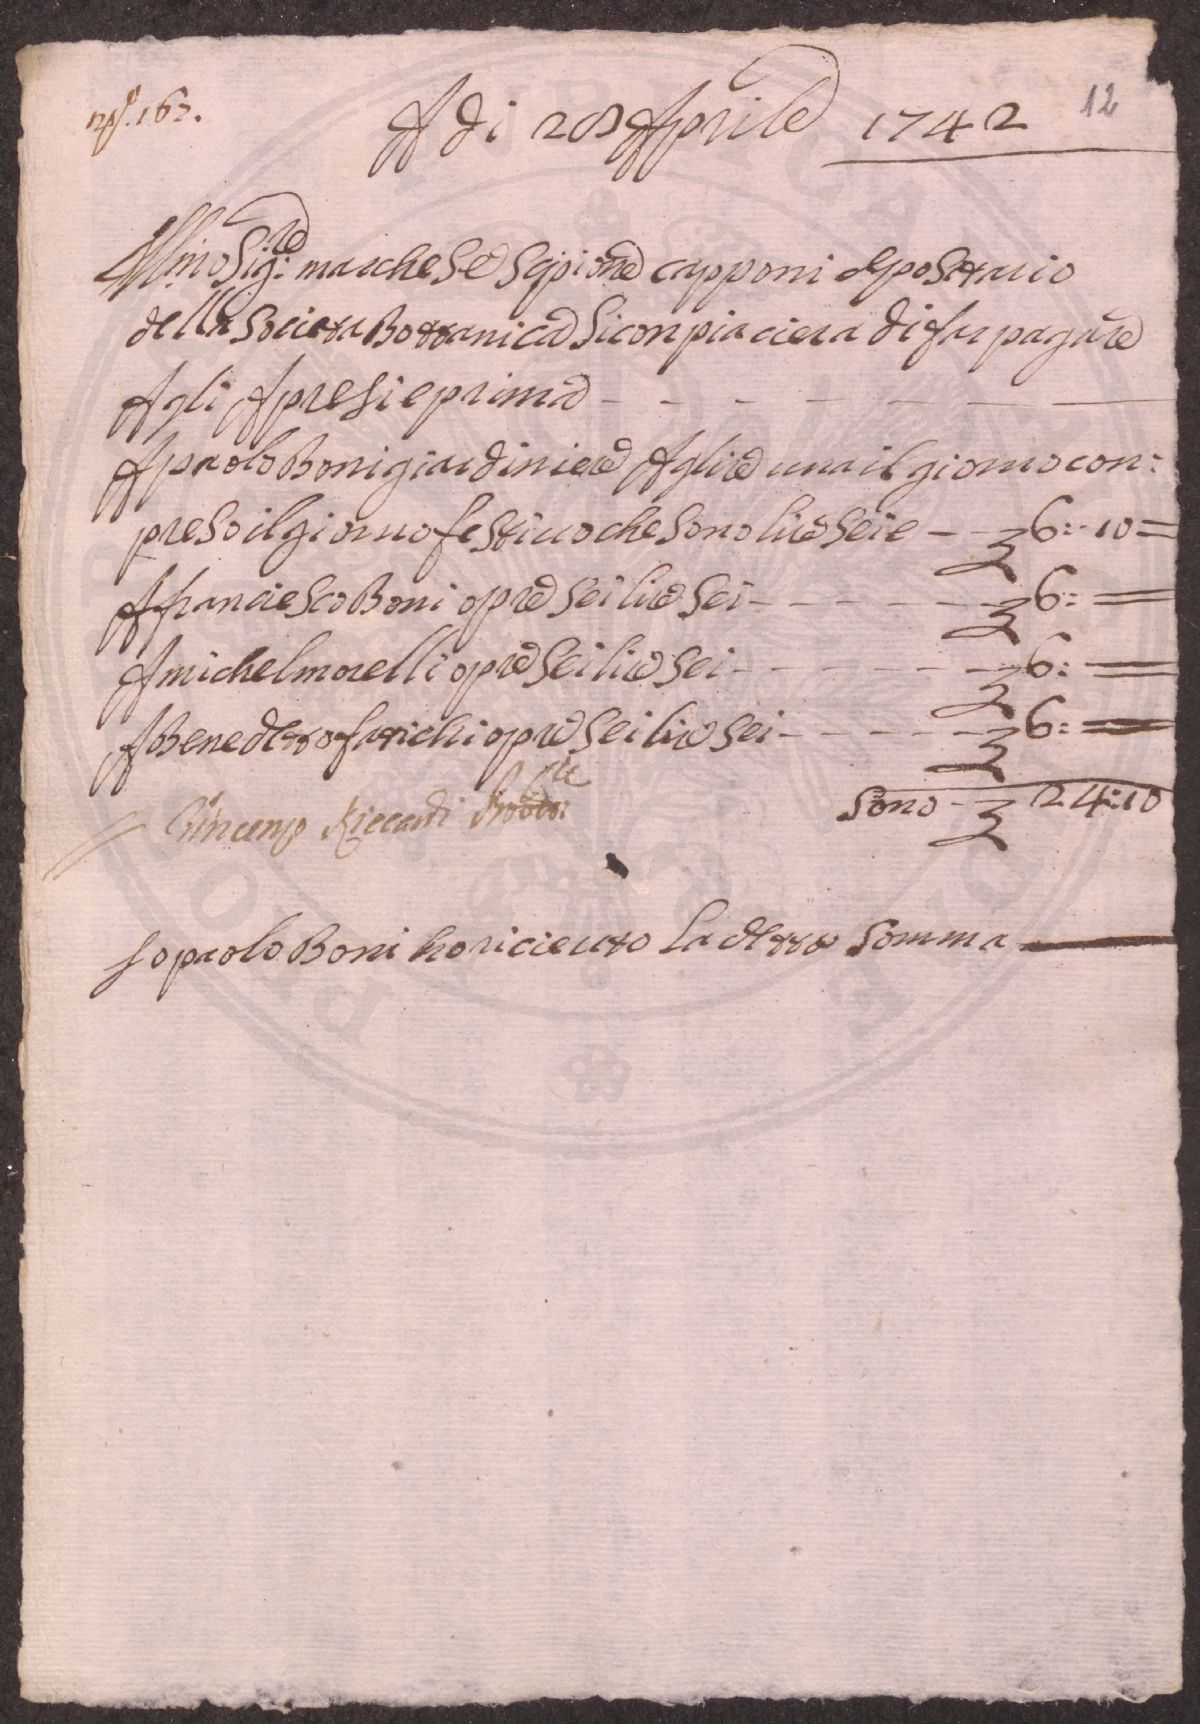 n.º 163.
12
A di 28 Aprile 1742
Ill.mo Sig.re marchese Scipione capponi depositario
della Societta Bottanica Si conpiaciera di far pagare
Agli Apresie prima
A paolo Boni giardiniere A lire una il giorno con:
preso il giorno festiuo che sono lire seie - £ 6:-10=
A franciesco Boni opre sei lire sei - - - - £ 6:=
A michel morelli opre sei lire sei - - - - £ 6:=
A Benedetto fatichi opre sei lire sei - - - - £ 6:=
Sono - £ 24:10
Vincenzo Riccardi
Io paolo Boni ho riceuto La detta Somma